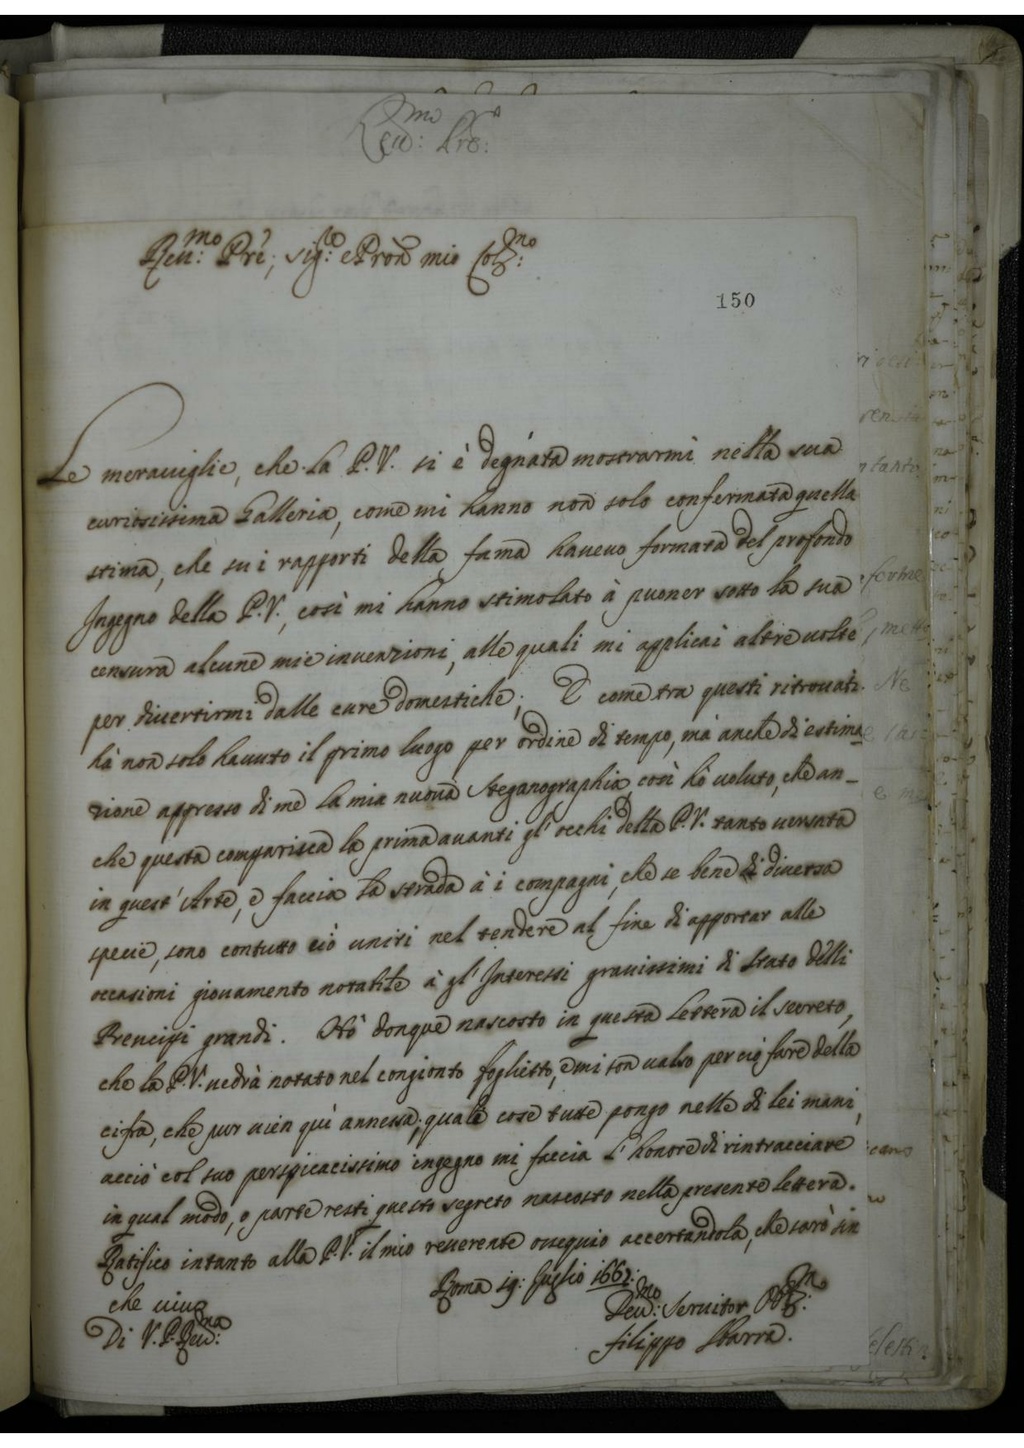 Reu:mo Pre:
Reu:mo Prè, sig:re e Pròn mio Col:mo
150
Le merauiglie, che la P.V. si è degnata mostrarmi nella sua
curiosissima Galleria, come mi hanno non solo confermata quella
stima, che su i rapporti della fama haueuo formata del profondo
Ingegno della P.V., così mi hanno stimolato à puoner sotto la sua
censura alcune mie inuenzioni, alle quali mi applicai altre uolte
per diuertirmi dalle cure domestiche; E come tra questi ritrouati
hà non solo hauuto il primo luogo per ordine di tempo, mà anche di estima
zione appresso di me la mia nuoua steganographia, così hò uoluto, che an-
che questa comparisca la prima auanti gl' occhi della P.V. tanto uersata
in quest' Arte, e faccia la strada à i compagni, che se bene di diuersa
specie, sono contutto ciò uniti nel tendere al fine di apportar alle
occasioni giouamento notabile à gl' Interessi grauissimi di Stato delli
Prencipi grandi. Hò donque nascosto in questa lettera il secreto,
che la P.V. uedrà notato nel congionto foglietto, e mi son ualso per ciò fare della
cifra, che pur uien quì annessa; quale cose tutte pongo nelle di lei mani,
acciò col suo perspicacissimo ingegno mi faccia l' honore di rintracciare
in qual modo, o parte resti questo segreto nascosto nella presente lettera.
Ratifico intanto alla P.V. il mio reuerente ossequio accertandola, che sarò sin
che uiua Roma 19: Luglio
Di V.P. Reu:ma Deu:mo Seruitor Obl:mo
Filippo Sbarra.